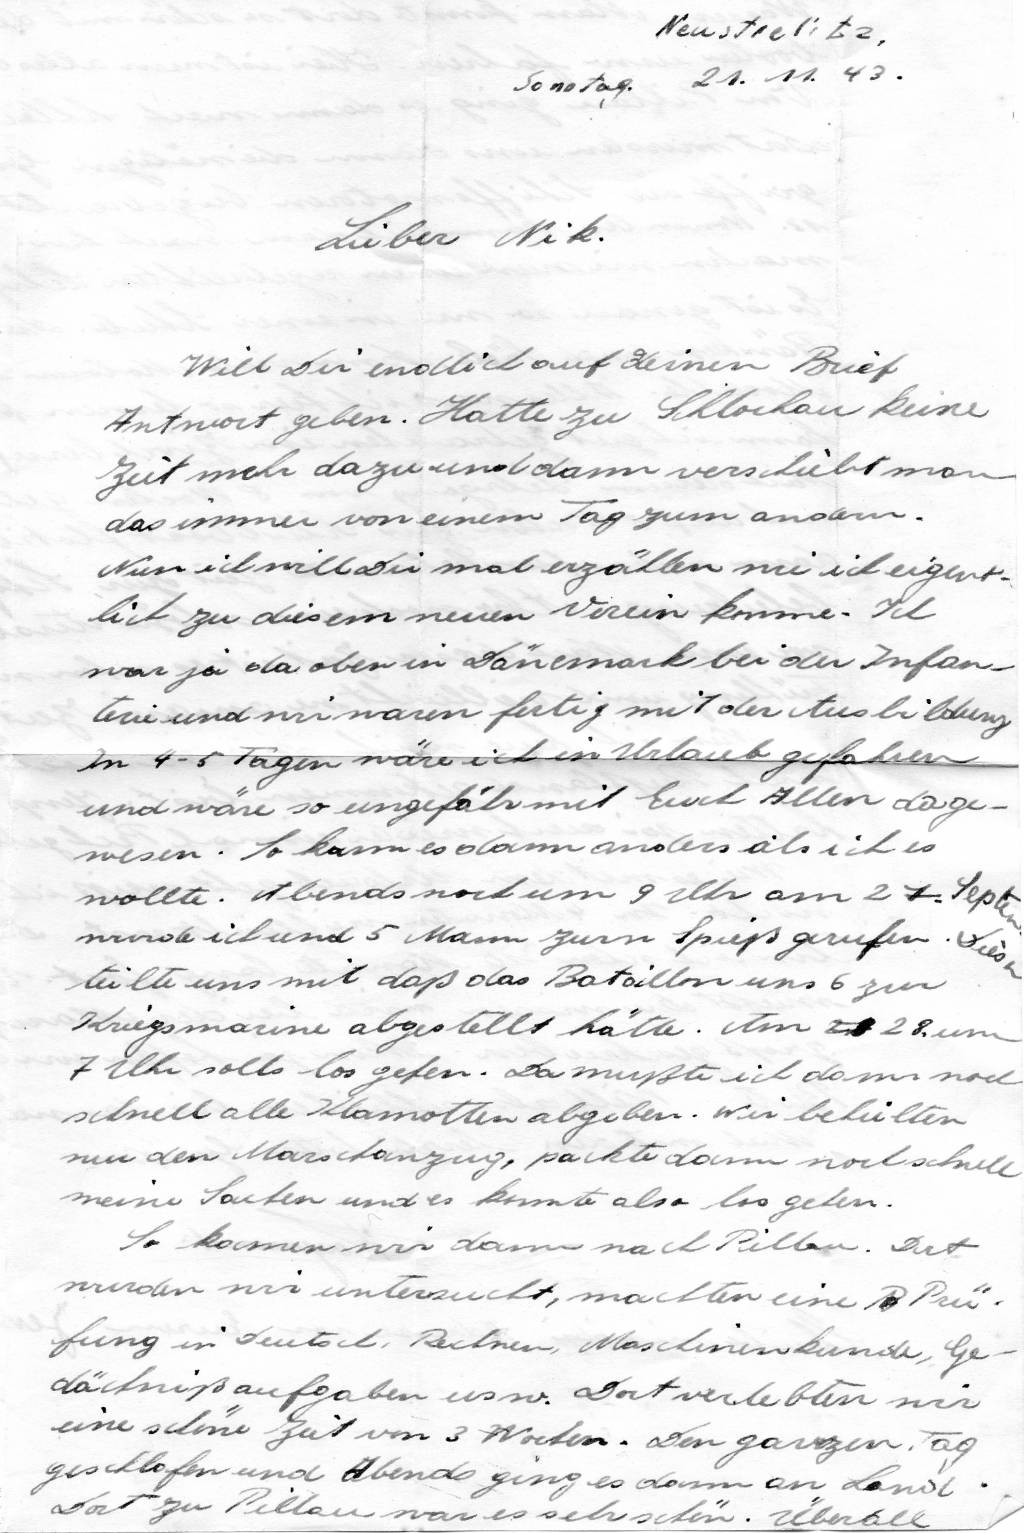 Neustrelitz,
Sonntag. 21. 11. 43.
Lieber Nik.
Will Dir endlich auf Deinen Brief
Antwort geben. Hatte zu Schlochau keine
Zeit mehr dazu und dann verschiebt man
das immer von einem Tag zum andern.
Nun ich will Dir mal erzählen wie ich eigent-
lich zu diesem neuen Verein komme. Ich
war ja da oben in Dänemark bei der Infan-
terie und wir waren fertig mit der Ausbildung
In 4-5 Tagen wäre ich in Urlaub gefahren
und wäre so ungefähr mit Euch Allen dage-
wesen. So kam es dann anders als ich es
wollte. Abends noch um 9 Uhr am 27. Septem.
wurde ich und 5 Mann zum Spieß gerufen. Dieser
teilte uns mit daß das Bataillon uns 6 zur
Kriegsmarine abgestellt hätte. Am 28. um
7 Uhr solls los gehen. Da mußte ich dann noch
schnell alle Klamotten abgeben. Wir behielten
nur den Marschanzug, packte dann noch schnell
meine Sachen und es konnte also los gehen.
So kamen wir dann nach Pillau. Dort
wurden wir untersucht, machten eine Prü-
fung in Deutsch, Rechnen, Maschinenkunde, Ge-
dächnißaufgaben usw. Dort verlebten wir
eine schöne Zeit von 3 Wochen. Den ganzen Tag
geschlafen und Abends ging es dann an Land.
Dort zu Pillau war es sehr schön. Überall